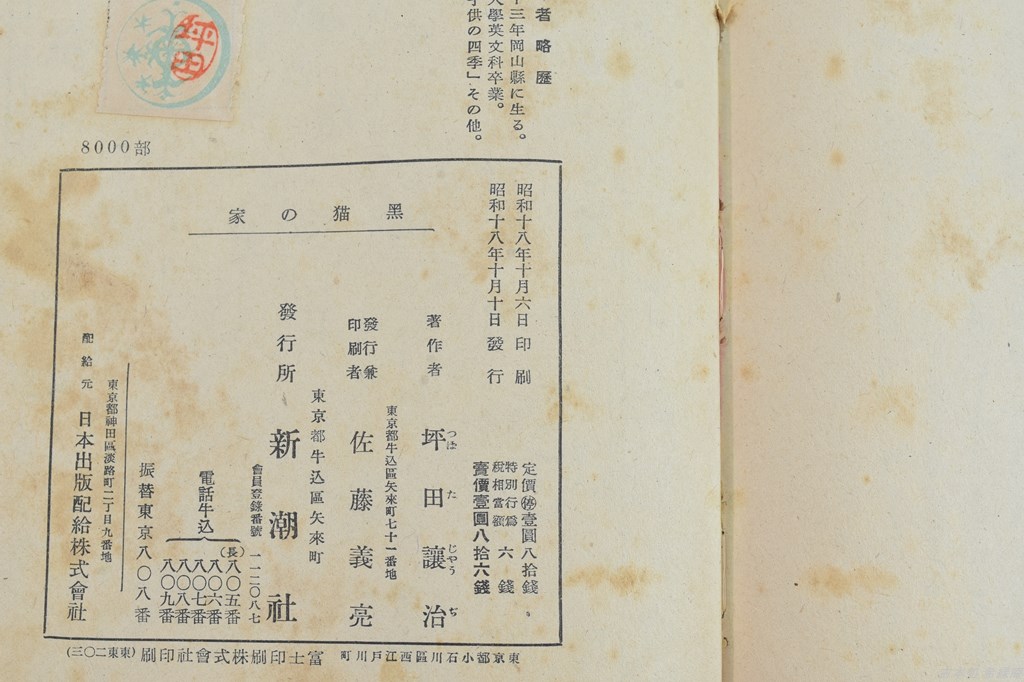 者略歷
十三年岡山縣に生る。
大學英文科卒業。
子供の四季」その他。
坪田
8000部
昭和十八年十月六日印刷
昭和十八年十月十日發行
定價㊕壹圓八拾錢
特別行爲税相當額 六錢
賣價壹圓八拾六錢
黑猫の家
著作者 坪田讓治
つぼ た じやう ぢ
東京都牛込區矢來町七十一番地
發行兼印刷者 佐藤義亮
東京都牛込區矢來町
發行所 新潮社
會員登錄番號 一一二〇八七
電話牛込
(長)八〇五番
八〇六番
八〇七番
八〇八番
八〇九番
振替東京八〇八番
東京都神田區淡路町二丁目九番地
配給元 日本出版配給株式會社
東京都小石川區西江戸川町 富士印刷株式會社印刷 (東東二〇三)